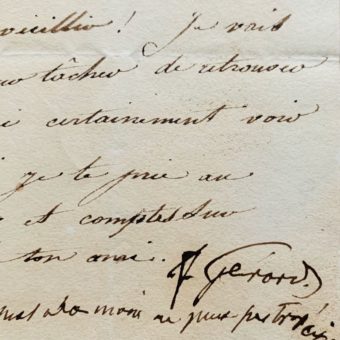 vieillir ! Je vais
tâcher de retrouver
certainement voir
je te prie au
et comptes sur
ton ami.
F Gérard.
main ne peux pas trop